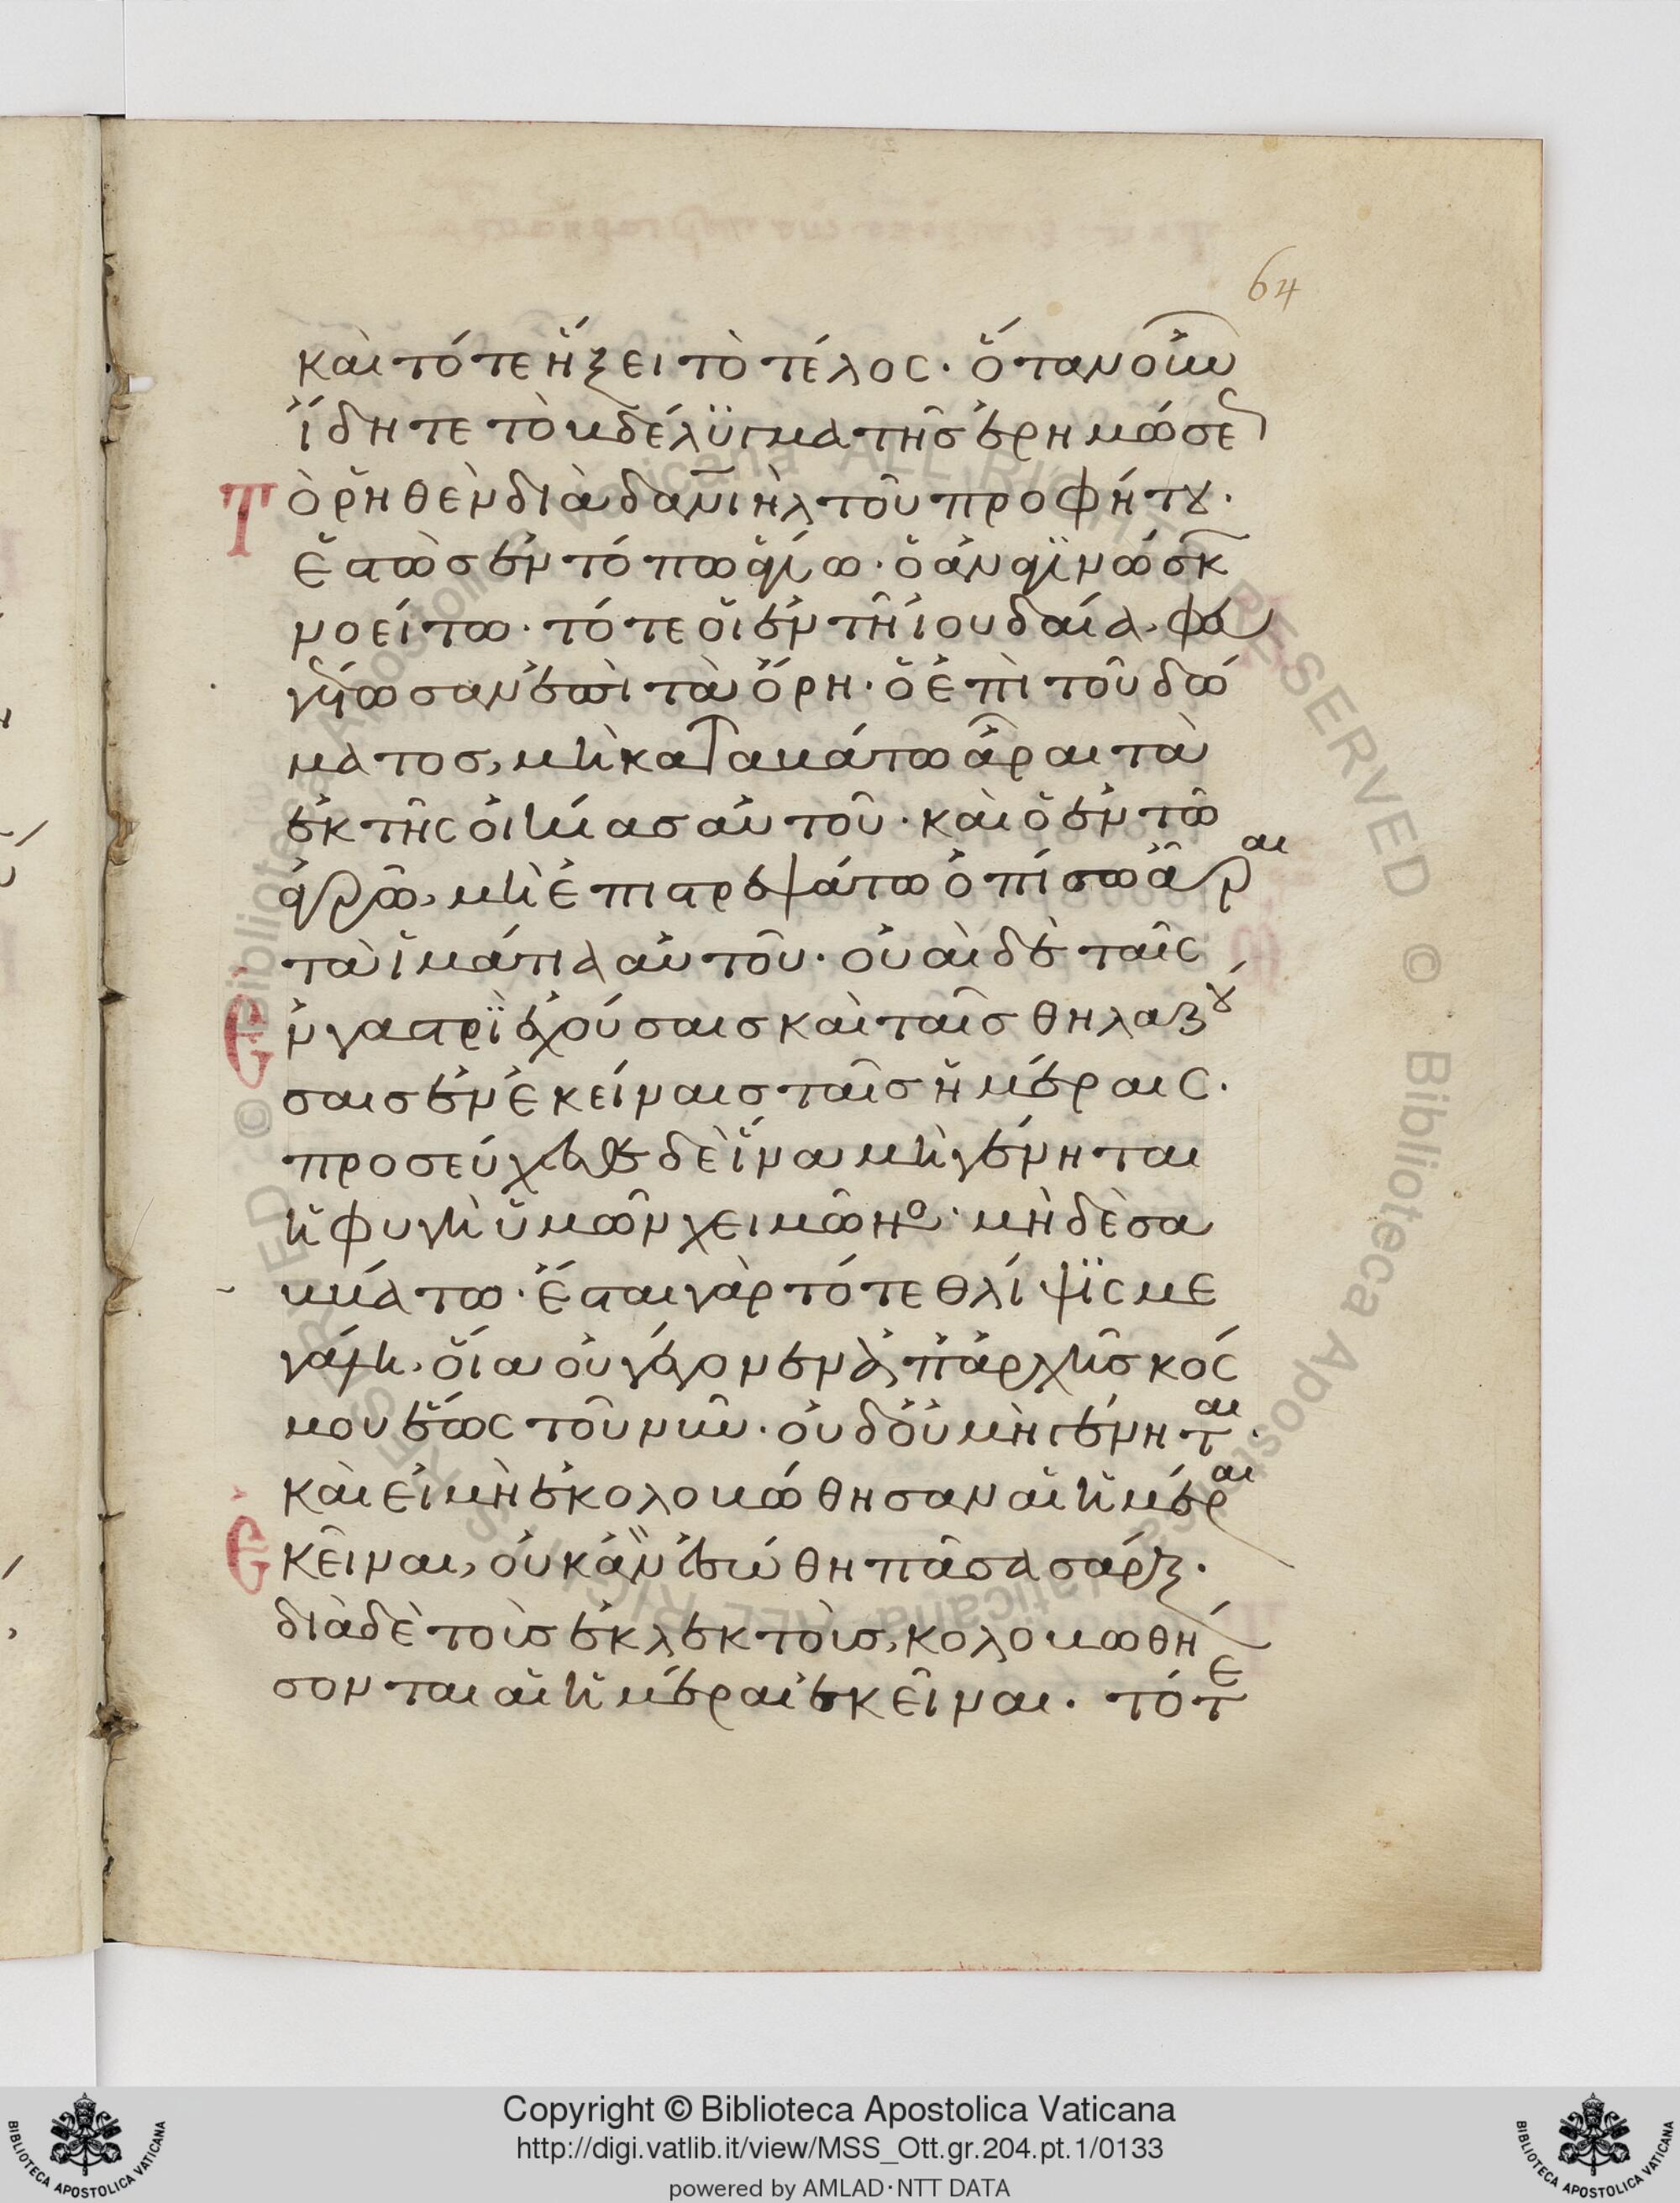 64
καὶ τότε ἥξει τὸ τέλος· ὅταν οὖν
ἴδητε τὸ βδέλϋγμα τῆς ἐρημώσε
Τὸ ῥηθὲν διὰ δανιὴλ τοῦ προφήτου·
ἑστὼς ἐν τόπω ἁγίω· ὁ ἀναγϊνώσκ
νοείτω· τότε οἱ ἐν τῆ ἰουδαία, φευ
γέτωσαν ἐπὶ τὰ ὄρη· ὁ ἐπὶ τοῦ δώ
ματος, μὴ καταβάτω ἆραι τὰ
ἐκ τῆς οἰκίας αὐτοῦ· καὶ ὁ ἐν τῶ
ἀγρῶ, μὴ ἐπιστρεψάτω ὀπίσω ἆραι
τὰ ἱμάτια αὐτοῦ· οὐαὶ δὲ ταῖς
Ἐν γαστρῒ ἐχούσαις καὶ ταῖς θηλαζου
σαις ἐν ἐκείναις ταῖς ἡμέραις·
προσεύχεσθε δὲ ἵνα μὴ γένηται
ἡ φυγὴ ὑμῶν χειμῶνος· μηδὲ σα
ββάτω· ἔσται γὰρ τότε θλίψϊς με
γάλη, οἵα οὐ γέγονεν ἀπ ἀρχῆς κόσ
μου ἕως τοῦ νῦν· οὐδ οὐ μὴ γένηται·
καὶ εἰ μὴ ἐκολοβώθησαν αἱ ἡμέραι
Ἐκεῖναι, οὐκ ἂν ἐσώθη πᾶσα σάρξ·
διὰ δὲ τοὺς ἐκλεκτοὺς, κολοβωθή
σονται αἱ ἡμέραι ἐκεῖναι· τότε
Copyright © Biblioteca Apostolica Vaticana
http://digi.vatlib.it/view/MSS_Ott.gr.204.pt.1/0133
powered by AMLAD·NTT DATA
BIBLIOTECA APOSTOLICA VATICANA
BIBLIOTECA APOSTOLICA VATICANA